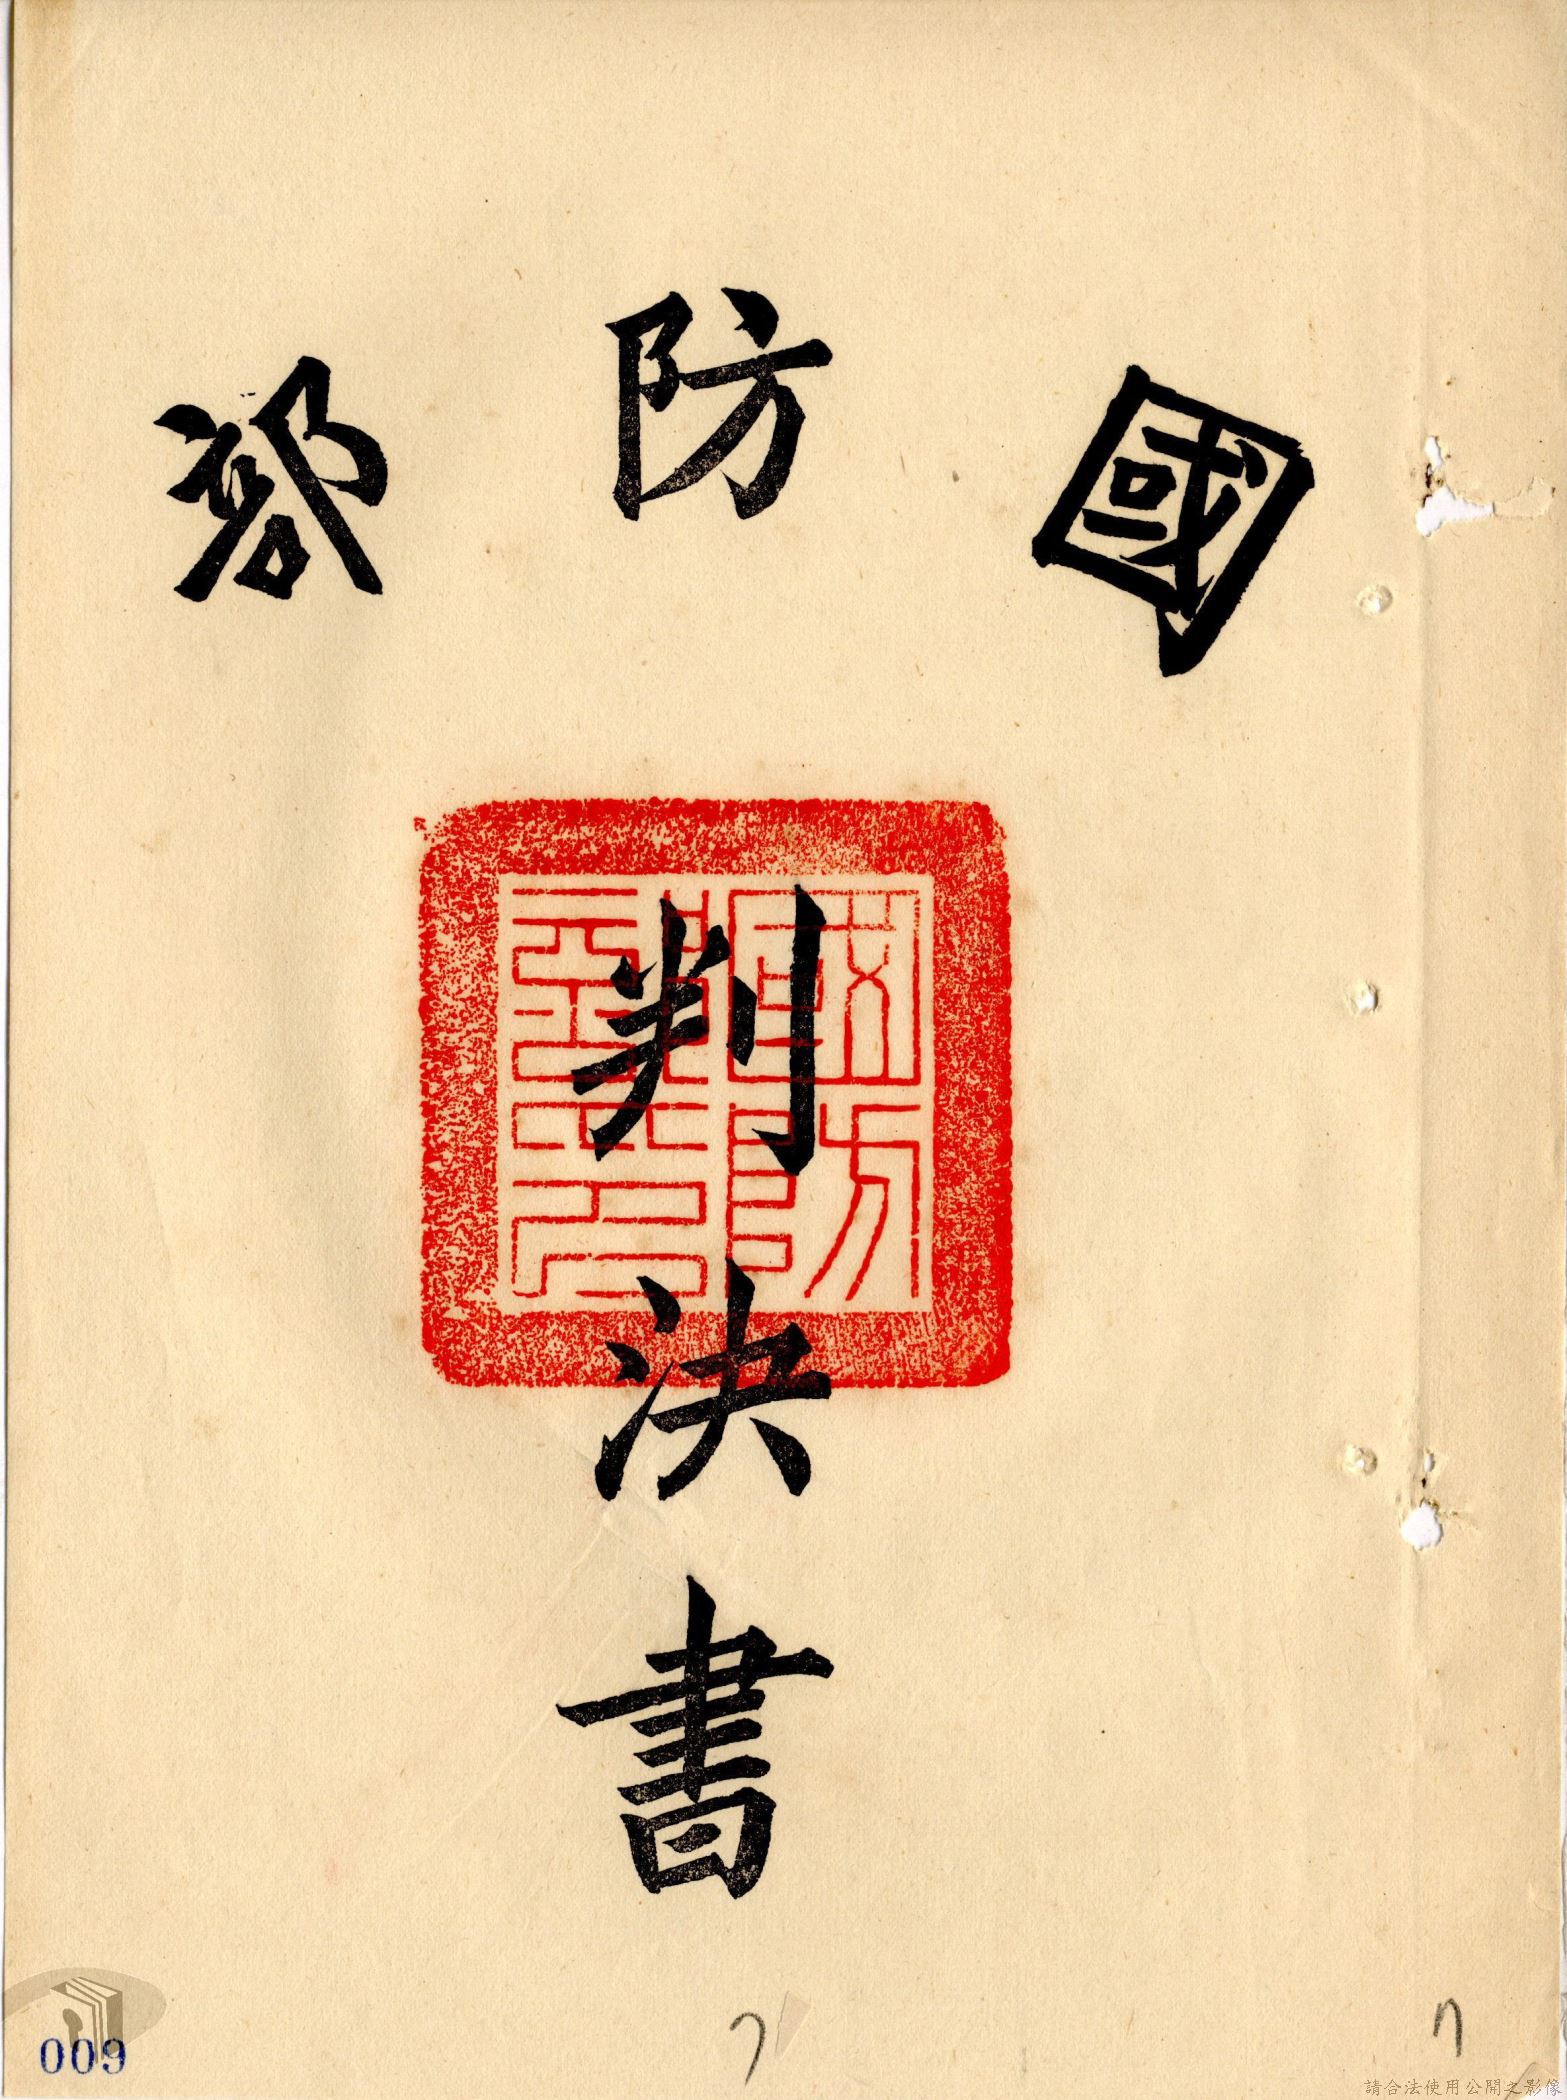 國防部
判決書
國防部印
009
7
7
請合法使用公開之影像